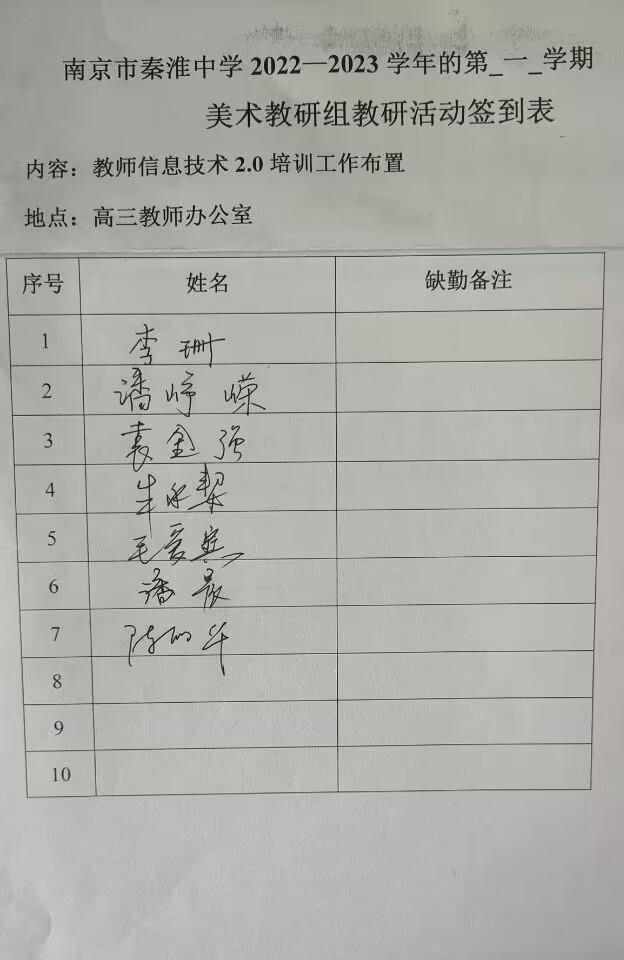 南京市秦淮中学 2022—2023 学年的第_一_学期
美术教研组教研活动签到表
内容：教师信息技术 2.0 培训工作布置
地点：高三教师办公室
序号 姓名 缺勤备注
1 李珊
2 潘峥嵘
3 袁金强
4 朱永
5 毛爱
6 潘晨
7 陈
8
9
10